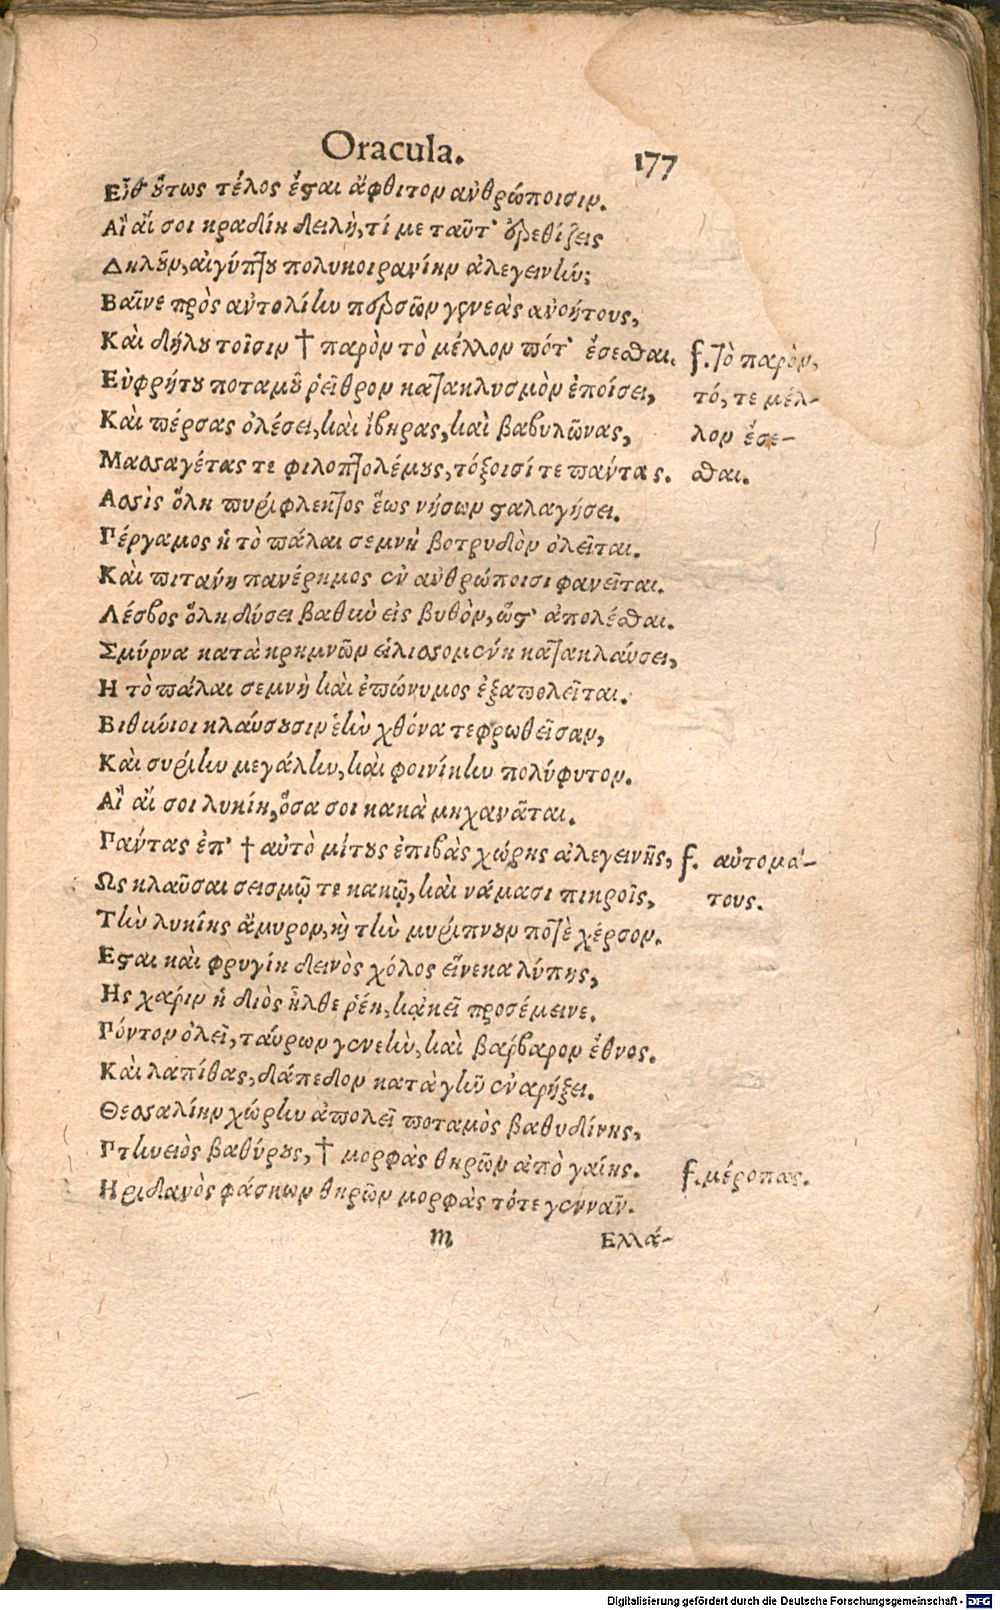 Oracula. 177
Εἶθ' οὕτως τέλος ἔσται ἄφθιτον ἀνθρώποισιν.
Αἲ αἴ σοι κραδίη δειλὴ, τί με ταῦτ' ἐρεθίζεις
Δηλοῦν, αἰγύπτου πολυκοιρανίην ἀλεγεινὴν;
Βαῖνε πρὸς ἀντολίην περσῶν γενεὰς ἀνοήτους,
Καὶ δήλου τοῖσιν † παρὸν τὸ μέλλον πότ' ἔσεσθαι. f. τὸ παρὸν,
Εὐφρήτου ποταμοῦ ῥεῖθρον κατακλυσμὸν ἐποίσει, τό, τε μέλ-
Καὶ πέρσας ὀλέσει, καὶ ἴβηρας, καὶ βαβυλῶνας, λον ἔσε-
Μασσαγέτας τε φιλοπτολέμους, τόξοισί τε πάντας. σθαι.
Ασσὶς ὅλη πυρίφλεκτος ἕως νήσων σταλαγήσει.
Γέργαμος ἡ τὸ πάλαι σεμνὴ βοτρυδὸν ὀλεῖται.
Καὶ πιτανὴ πανέρημος ἐν ἀνθρώποισι φανεῖται.
Λέσβος ὅλη δύσει βαθὺν εἰς βυθὸν, ὥστ' ἀπολέσθαι.
Σμύρνα κατὰ κρημνῶν εἱλισσομένη κατακλαύσει,
Η τὸ πάλαι σεμνὴ καὶ ἐπώνυμος ἐξαπολεῖται.
Βιθυνοὶ κλαύσουσιν ἑὴν χθόνα τεφρωθεῖσαν,
Καὶ συρίην μεγάλην, καὶ φοινίκην πολύφυτον.
Αἲ αἴ σοι λυκίη, ὅσα σοι κακὰ μηχανᾶται.
Γαντας ἐπ' † αὐτὸ μίτους ἐπιβὰς χώρης ἀλεγεινῆς, f. αὐτομά-
Ως κλαῦσαι σεισμῷ τε κακῷ, καὶ νάμασι πικροῖς, τους.
Τὴν λυκίης ἄμυρον, καὶ τὴν μυρίπνουν ποτὲ χέρσον.
Εσται καὶ φρυγίη δεινὸς χόλος εἵνεκα λύπης,
Ης χάριν ἡ διὸς ἦλθε ῥέη, κἀκεῖ προσέμεινε.
Γόντον ὀλεῖ, ταύρων γενεὴν, καὶ βάρβαρον ἔθνος.
Καὶ λαπίθας, δάπεδον κατὰ γῆν ἐναρήξει.
Θεσσαλίην χώρην ἀπολεῖ ποταμὸς βαθυδίνης,
Γηνειὸς βαθύρους, † μορφὰς θηρῶν ἀπὸ γαίης. f. μέροπας.
Ηριδανὸς φάσκων θηρῶν μορφὰς τότε γενναῖν.
m Ελλά-
Digitalisierung gefördert durch die Deutsche Forschungsgemeinschaft - DFG